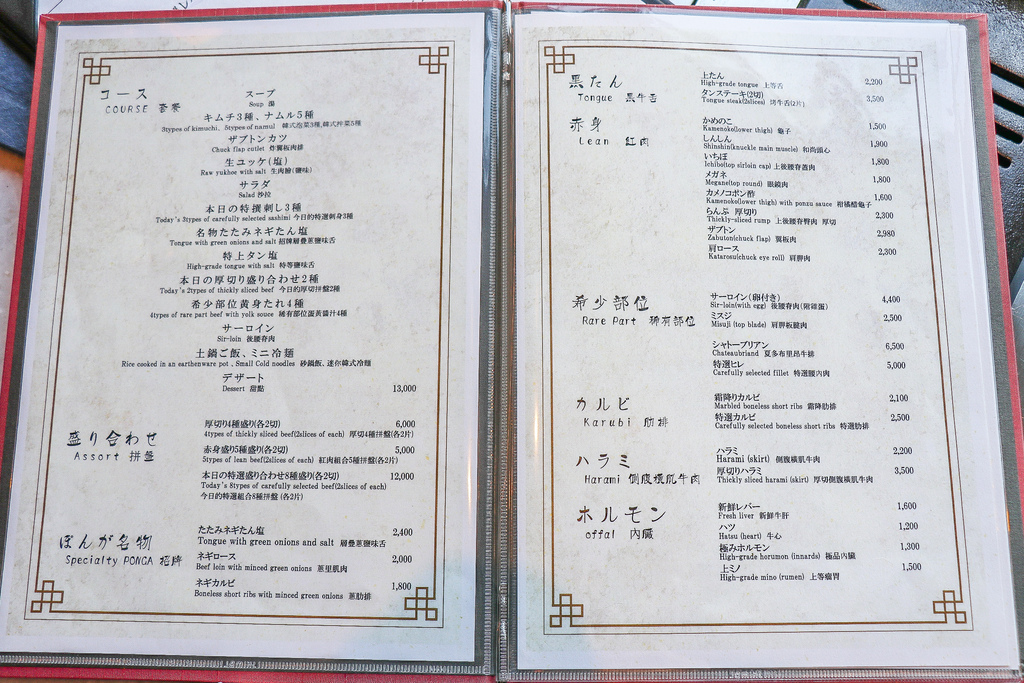 コース
COURSE 套餐
スープ
Soup 湯
キムチ3種、ナムル5種
3types of kimuchi、5types of namul 韓式泡菜3種,韓式拌菜5種
ザブトンカツ
Chuck flap cutlet 骨翼板肉排
生ユッケ(塩)
Raw yukhoe with salt 生肉膾(鹽味)
サラダ
Salad 沙拉
本日の特撰刺し3種
Today's 3types of carefully selected sashimi 今日的特選刺身3種
名物たたみネギたん塩
Tongue with green onions and salt 招牌層疊蔥鹽味舌
特上タン塩
High-grade tongue with salt 特等鹽味舌
本日の厚切り盛り合わせ2種
Today's 2types of thickly sliced beef 今日的厚切拼盤2種
希少部位黄身たれ4種
4types of rare part beef with yolk souce 稀有部位蛋黃醬汁4種
サーロイン
Sir-loin 後腰脊肉
土鍋ご飯、ミニ冷麺
Rice cooked in an earthenware pot , Small Cold noodles 砂鍋飯、迷你韓式冷麵
デザート
Dessert 甜點 13,000
盛り合わせ
Assort 拼盤
厚切り4種盛り(各2切) 6,000
4types of thickly sliced beef(2slices of each) 厚切4種拼盤(各2片)
赤身盛り5種盛り(各2切) 5,000
5types of lean beef(2slices of each) 紅肉組合5種拼盤(各2片)
本日の特選盛り合わせ8種盛り(各2切) 12,000
Today's 8types of carefully selected beef(2slices of each)
今日的特選組合8種拼盤 (各2片)
ぽんが名物
Specialty PONGA 招牌
たたみネギたん塩 2,400
Tongue with green onions and salt 層疊蔥鹽味舌
ネギロース 2,000
Beef loin with minced green onions 蔥里肌肉
ネギカルビ 1,800
Boneless short ribs with minced green onions 蔥肋排
黒たん
Tongue 黒牛舌
上たん 2,200
High-grade tongue 上等舌
タンステーキ(2切) 3,500
Tongue steak(2slices) 烤牛舌(2片)
赤身
Lean 紅肉
かめのこ 1,500
Kamenoko(lower thigh) 龜子
しんしん 1,900
Shinshin(knuckle main muscle) 和尚頭心
いちぼ 1,800
Ichibo(top sirloin cap) 上後腰脊蓋肉
メガネ 1,800
Megane(top round) 眼鏡肉
カメノコポン酢 1,600
Kamenoko(lower thigh) with ponzu sauce 柑橘醋龜子
らんぷ 厚切り 2,300
Thickly-sliced rump 上後腰脊臀肉 厚切
ザブトン 2,980
Zabuton(chuck flap) 翼板肉
肩ロース 2,300
Katarosu(chuck eye roll) 肩胛肉
希少部位
Rare Part 稀有部位
サーロイン(卵付き) 4,400
Sir-loin(with egg) 後腰脊肉(附雞蛋)
ミスジ 2,500
Misuji (top blade) 肩胛板腱肉
シャトーブリアン 6,500
Chateaubriand 夏多布里昂牛排
特選ヒレ 5,000
Carefully selected fillet 特選腰內肉
カルビ
Karubi 肋排
霜降りカルビ 2,100
Marbled boneless short ribs 霜降肋排
特選カルビ 2,500
Carefully selected boneless short ribs 特選肋排
ハラミ
Harami 側腹橫肌牛肉
ハラミ 2,200
Harami (skirt) 側腹橫肌牛肉
厚切りハラミ 3,500
Thickly sliced harami (skirt) 厚切側腹橫肌牛肉
ホルモン
offal 內臟
新鮮レバー 1,600
Fresh liver 新鮮牛肝
ハツ 1,200
Hatsu (heart) 牛心
極みホルモン 1,300
High-grade horumon (innards) 極品內臟
上ミノ 1,500
High-grade mino (rumen) 上等瘤胃